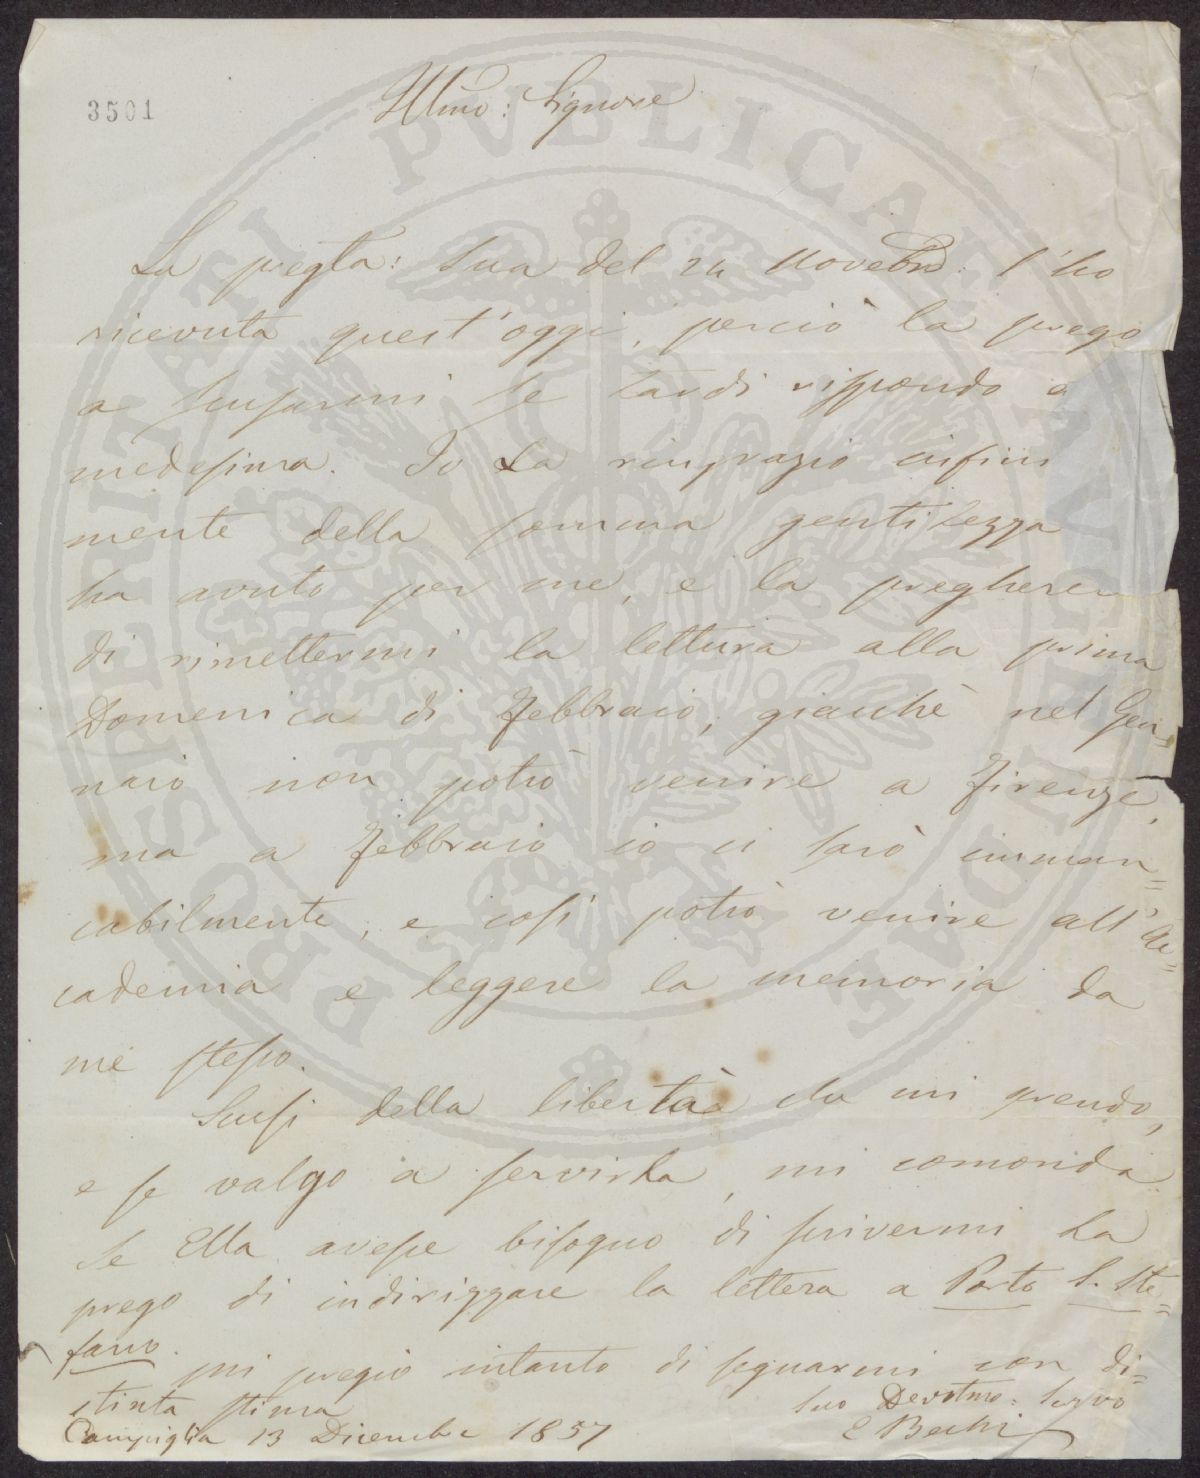 3501
Illmo: Signore
La pregta: Sua del 24 Novebre: l'ho
ricevuta quest'oggi, perciò la prego
a scusarmi se tardi rispondo a
medesima. Io La ringrazio infini
mente della somma gentilezza
ha avuto per me, e la pregherei
di rimettermi la lettura alla prima
Domenica di Febbraio, giacchè nel Gen=
naio non potrò venire a Firenze,
ma a Febbraio io ci sarò imman=
cabilmente, e così potrò venire all'Ac=
cademia e leggere la memoria da
me stesso.
Scusi della libertà che mi prendo,
e se valgo a servirla, mi comanda.
Se Ella avesse bisogno di scrivermi La
prego di indirizzare la lettera a Porto S. Ste=
fano.
Mi pregio intanto di segnarmi con di=
stinta stima
Suo Devotmo: Servo
E Bechi
Campiglia 13 Dicembre 1857
PROSPERITATI PVBLICAE AVGENDAE